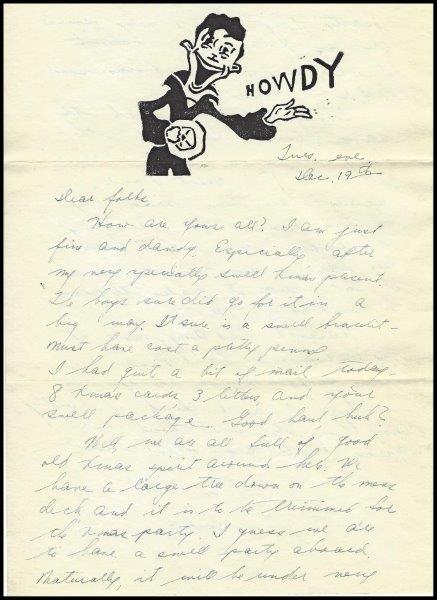 HOWDY
Tues. eve.
Dec. 19th
Dear folks,
How are your all? I am just
fine and dandy. Especially after
my very specially swell Xmas present.
The boys sure did go for it in a
big way. It sure is a swell
must have cost a pretty penny
I had quit a bit of mail today -
8 Xmas cards, 3 letters, and your
swell package. Good haul, huh?
Well, we are all full of good
old Xmas spirit around here. We
have a large tree down on the mess
deck and it is to be trimmed for
the Xmas party. I guess we are
to have a swell party aboard.
Naturally, it will be under very